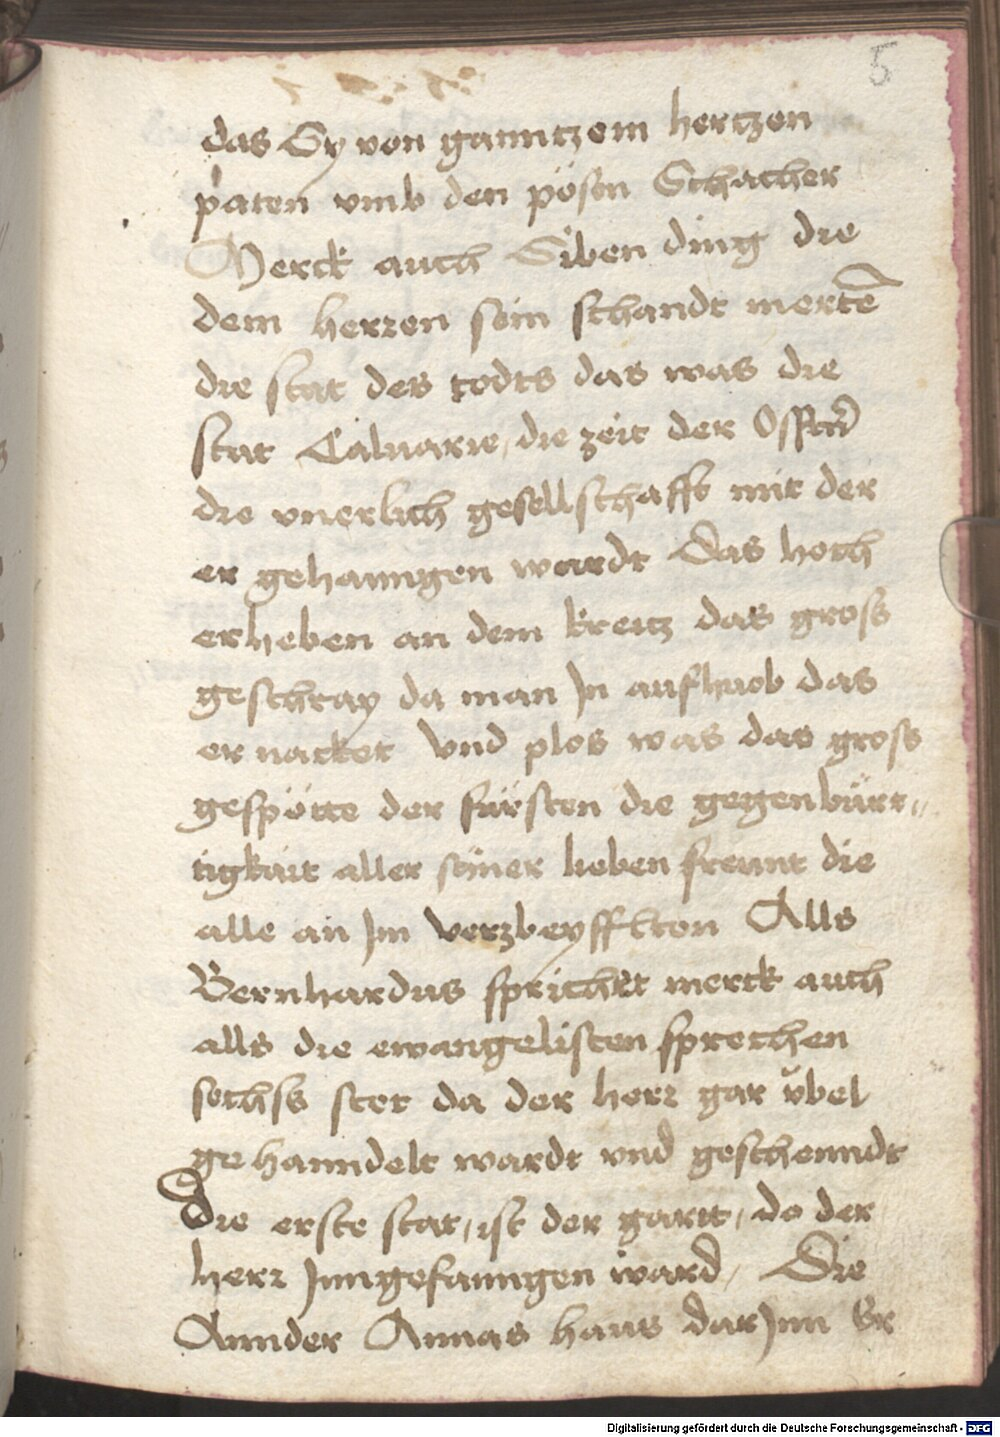 5
das Sy von ganntzem hertzen
paten vmb den pösen Schacher
Merck auch Siben ding die
dem herren sein schandt merten̄
die stat des todts das was die
stat Caluarie, die zeit der Osstn̄
die vnerlich gesellschafft mit der
er gehanngen wardt Das hoch
erheben an dem kreutz das gross
geschray da man Jn aufhuob das
er nacket vnd plos was das gross
gespötte der fürsten die gegenbürt„
tigkait aller seiner lieben freunt die
alle an Jm verzbeyfflten Alls
Bernhardus spricht merck auch
alls die ewangelisten sprechen
sechss stet da der herr gar v̈bel
gehanndelt wardt vnd geschenndt
Die erste stat, ist der gartt, do der
herr Jnngefanngen ward, Die
Annder Annas haus darJnn Er
Digitalisierung gefördert durch die Deutsche Forschungsgemeinschaft - DFG